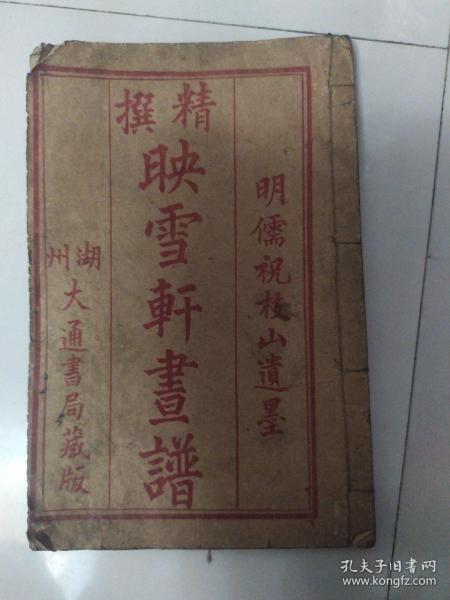 明儒祝枝山遺墨
精撰
映雪軒畫譜
湖州
大通書局藏版
孔夫子旧书网
www.kongfz.com